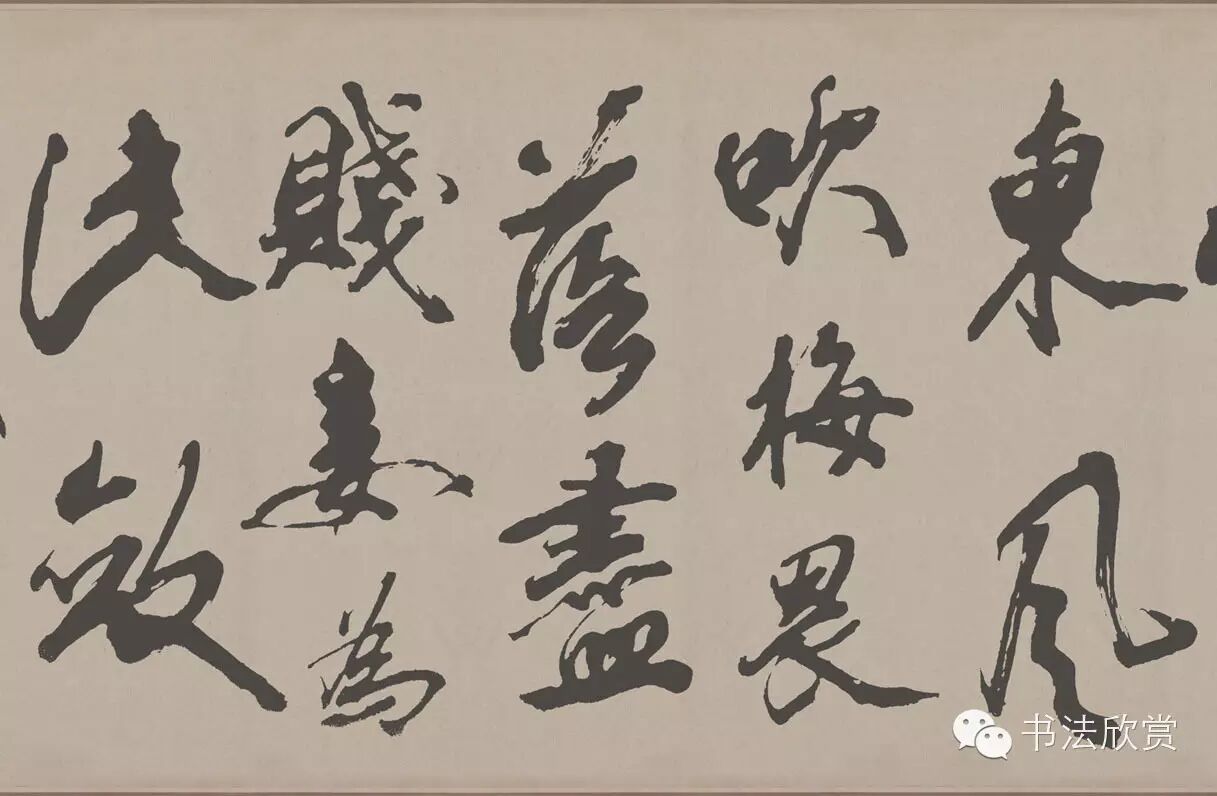 東風
吹梅畏
落盡
賤妾為
此斂
书法欣赏